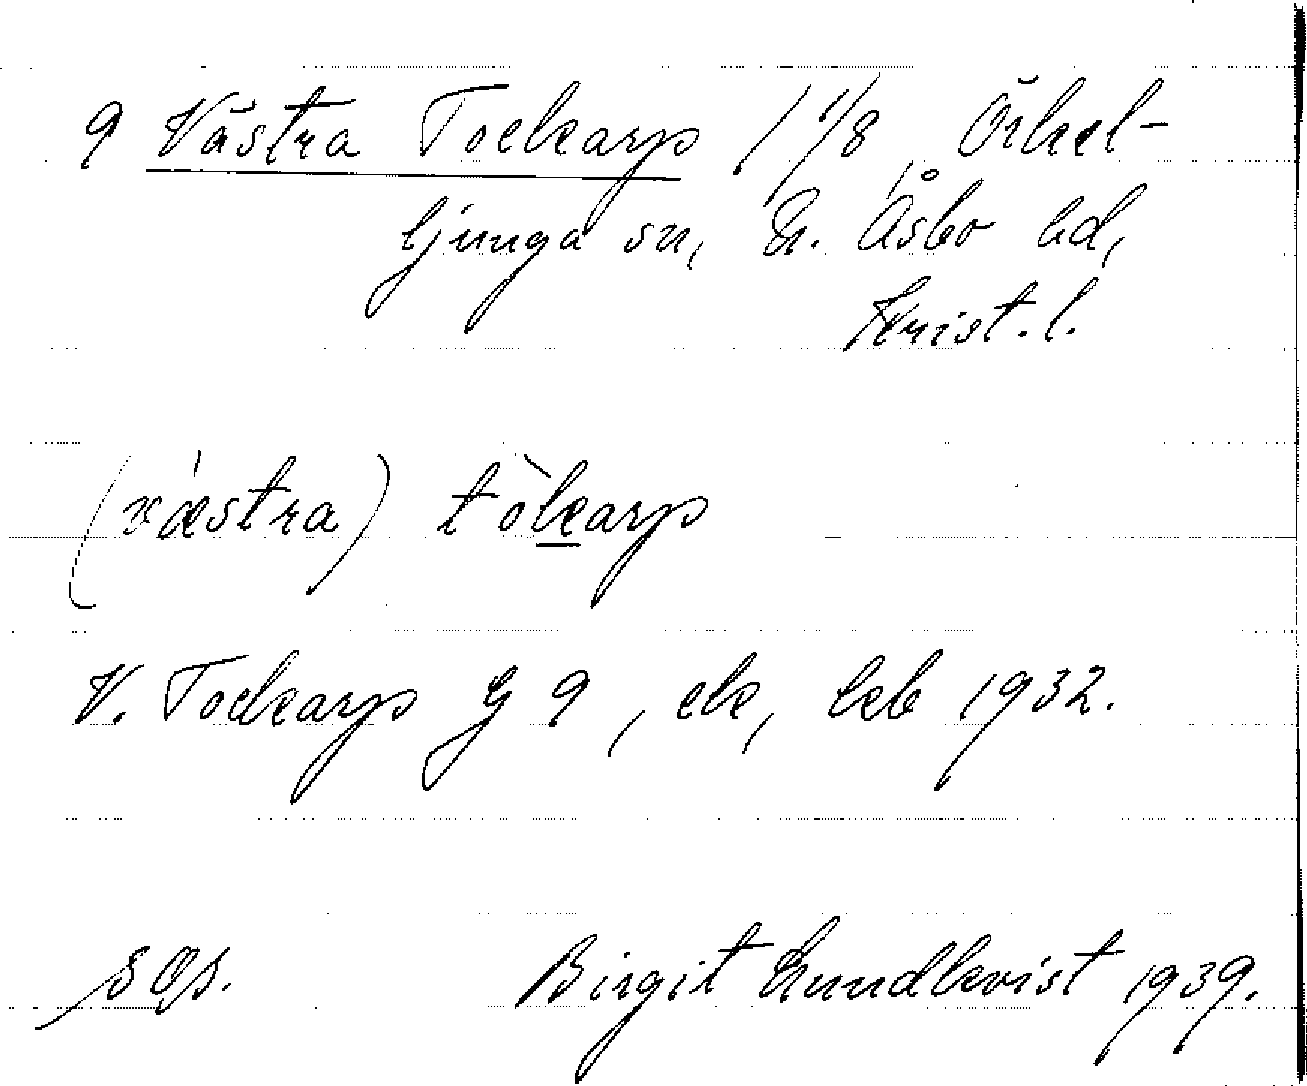 9 Västra Tockarp 1 1/8, Örkel-
ljunga sn, N. Åsbo hd,
Krist. l.
(væ̀stra) tòkarp
V. Tockarp G 9, ek, kkb 1932.
sOs. Birgit Lundkvist 1939.